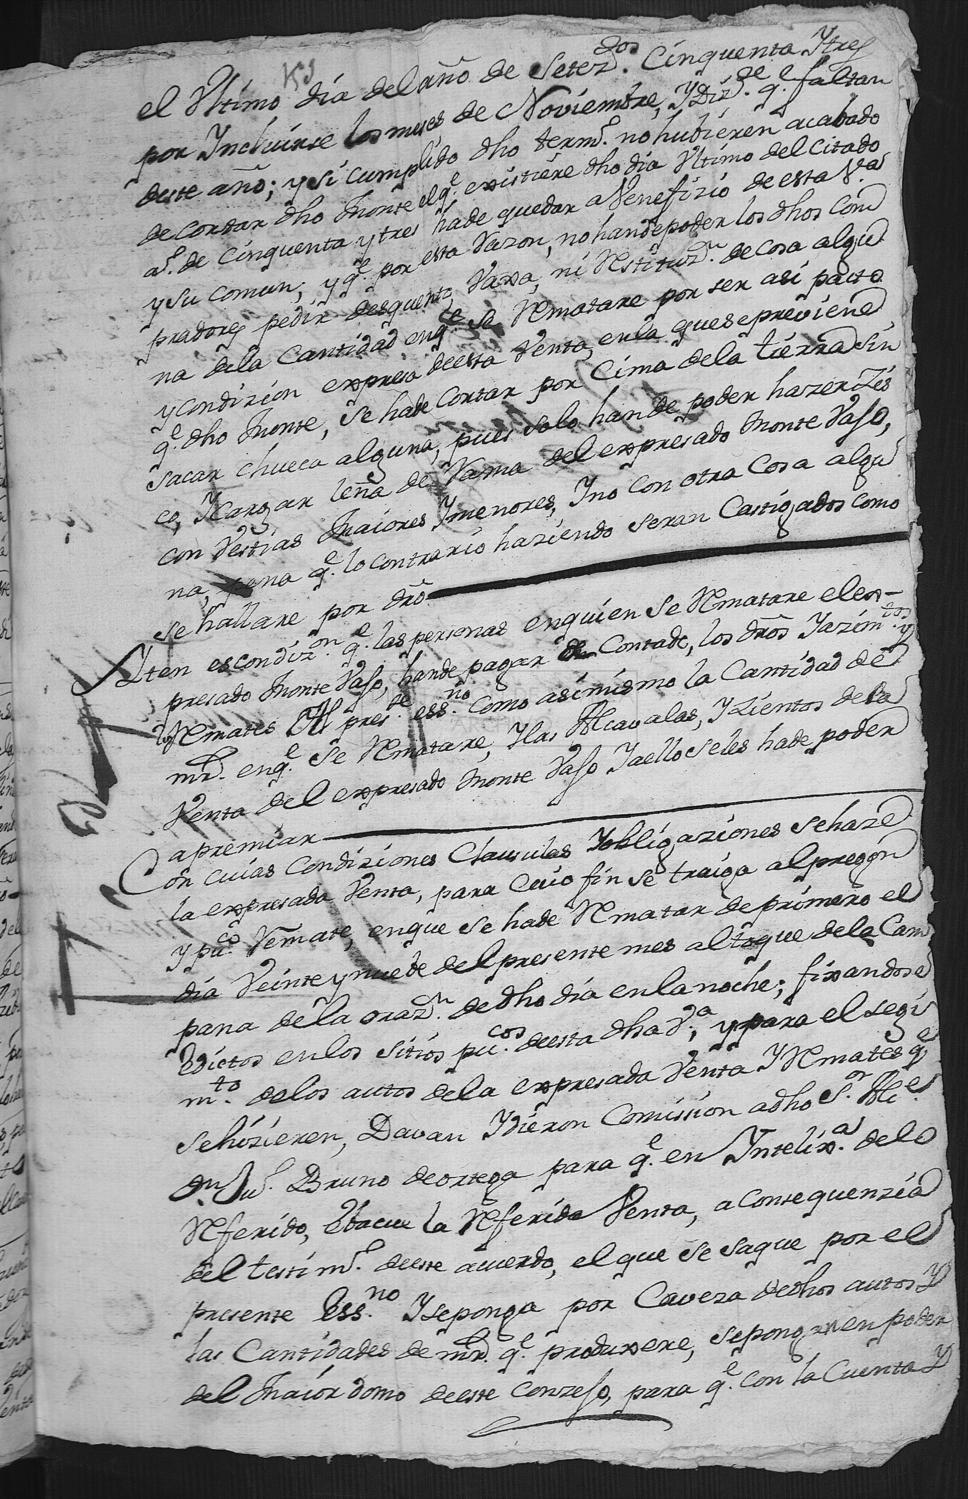 153
el Ultimo dia del año de Setez.dos Cinquenta Ytres
por Incluirse los meses de Noviembre, Y Diz.re q.e faltan
deste año; y si cumplido dho term.o no hubieren acabado
de cortar dho monte el q.e existiere dho dia Ultimo del Citado
a.o de Cinquenta y tres hade quedar a Benefizio de esta V.a
y su Comun; y q.e por esta Razon, no hande poder los dhos Com
pradores pedir desquento, Vaxa, ni Restituz.n de Cosa algu
na dela Cantidad en q.e se Rematare por ser asi pacto
y condizion expresa deesta Venta, en la que se previene
q.e dho Monte, se hade Cortar por Cima dela tierra sin
sacar chueca alguna, pues solo hande poder hazer Zis
co, Y Cargar leña de Rama del expresado monte Vajo,
con Vestias maiores Y menores, Y no con otra Cosa algu
na, pena q.e lo contrario haziendo seran Castigados como
se hallare por dro
Yten es condiz.on q.e las personas en quien se Rematare el ex-
presado monte Vajo, hande pagar de Contado, los dros Y azim.tos y
Remates al pres.te ess.no como asimismo la Cantidad de
mr.s en q.e se Rematare, Y las Alcavalas, Y Zientos de la
Venta del expresado monte Vajo Y aello seles hade poder
apremiar
Con cuias Condiziones Clausulas Y obligaziones se haze
la expresada Venta, para Cuio fin se traiga al pregon
y pu.co Remate, en que se hade Rematar de primero el
dia Veinte y nuebe del presente mes al toque dela Cam
pana de la oraz.n de dho dia en la noche; fixandose
Edictos en los sitios pu.cos deesta dha V.a, y para el segui
m.to de los autos de la expresada Venta Y Remates q.e
se hizieren, Davan Y dieron Comission a dho S.or Alc.e
Dn Ju.o Bruno de ortega para q.e en Yntelix.a delo
Referido, Ebacue la Referida Venta, a Consequenzia
del testim.o deeste acuerdo, el que se saque por el
presente Ess.no Y se ponga por Caveza de dhos autos Y
las Cantidades de mr.s q.e produxere, se pongan en poder
del Maiordomo deeste Conzejo, para q.e con la Cuenta Y